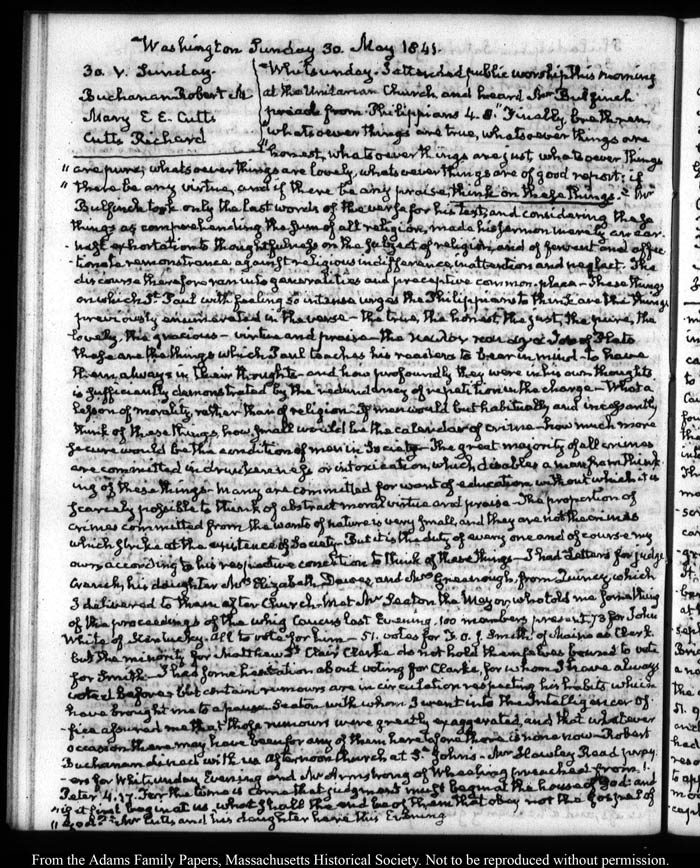 Washington Sunday 30. May 1841.
30. V. Sunday.
Buchanan Robert M
Mary E. E. Cutts
Cutts Richard
Whitsunday. I attended public worship this morning
at the Unitarian Church and heard Mr Bulfinch
preach from Philippians 4. 8. "Finally brethren,
"whatsoever things are true, whatsoever things are
"honest, whatsoever things are just whatsoever things
"are pure, whatsoever things are lovely, whatsoever things are of good report; if
"there be any virtue, and if there be any praise, think on these things." Mr
Bulfinch took only the last words of the verse for his text, and considering these
things as comprehending the sum of all religion, made his sermon merely an ear-
-nest exhortation to thoughtfulness on the subject of religion, and of fervent and affec-
-tionate remonstrance against religious indifference inattention and neglect. The
discourse therefore ran into generalities and preceptive common-place - These things
on which St. Paul with feeling so intense urges the Philippians to think are the things
previously enumerated in the verse - the true, the honest the just, the pure, the
lovely, the gracious - virtue and praise - the of Plato
these are the things which Paul teaches his readers to bear in mind - to have
them always in their thoughts - and how profoundly they were in his own thoughts
is sufficiently demonstrated by the redundancy of repetition in the charge - What a
lesson of morality, rather than of religion - If men would but habitually and incessantly
think of these things, how small would be the calendar of crime - how much more
secure would be the condition of men in Society - The great majority of all crimes
are committed in drunkenness or intoxication, which disables a man from think-
ing of these things - many are committed for want of education without which it is
scarcely possible to think of abstract moral virtue and praise - The proportion of
crimes committed from the wants of nature is very small, and they are not the crimes
which strike at the existence of Society. But it is the duty of every one and of course my
own according to his respective condition to think of these things - I had Letters for judge
Cranch, his daughter Mrs Elizabeth Dawes, and Mrs Greenough, from Quincy, which
I delivered to them after Church - Met Mr Seaton the Mayor, who told me something
of the proceedings of the whig Caucus last Evening. 100 members present, 73 for John
White of Kentucky - all to vote for him - 51. votes for F. O. J. Smith, of Maine as Clerk.
but the minority for Matthew St Clair Clarke do not hold themselves bound to vote
for Smith - I had some hesitation about voting for Clarke, for whom I have always
voted before; but certain rumours are in circulation respecting his habits which
have brought me to a pause. Seaton with whom I went into the Intelligencer Of-
-fice assured me that those rumours were greatly exaggerated, and that whatever
occasion there may have been for any of them heretofore there is none now - Robert
Buchanan dined with us. Afternoon church at St. Johns. Mr Hawley Read pray-
-ers for Whitsunday Evening and Mr Armstrong of Wheeling preached from 1.
Peter 4. 17. For the time is come that judgment must begin at the house of God: and
"if it first begin at us, what shall the end be of them that obey not the Gospel of
"God?" Mr Cutts and his daughter here this Evening
From the Adams Family Papers, Massachusetts Historical Society. Not to be reproduced without permission.